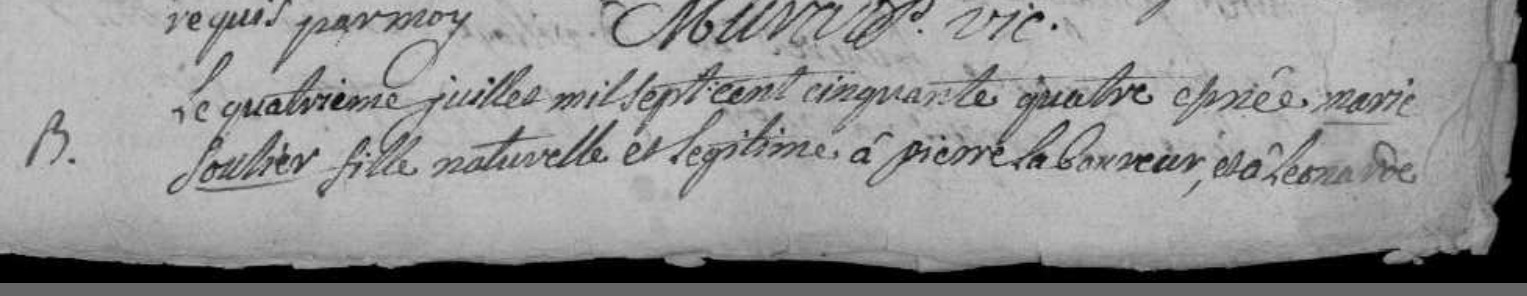 requis par moy
vic.
Le quatrieme juillet mil sept cent cinquante quatre marie
B. Soulier fille naturelle et legitime â pierre laboureur, et â Leonarde